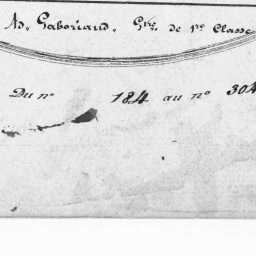 Ad. Gaboriaud. Gtre. de 1re Classe
Du no 184 au no 304